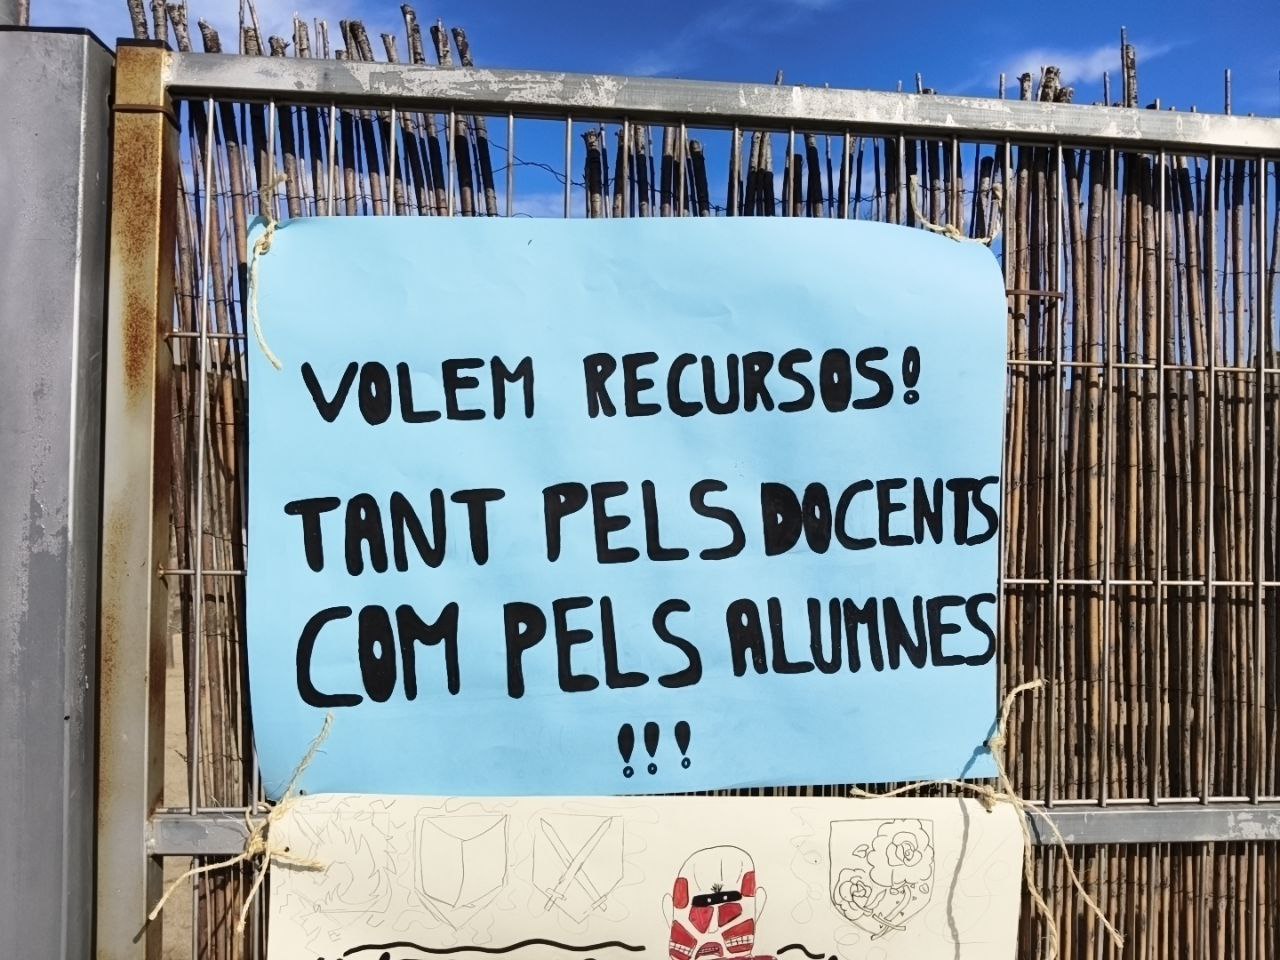 VOLEM RECURSOS!
TANT PELS DOCENTS
COM PELS ALUMNES
!!!